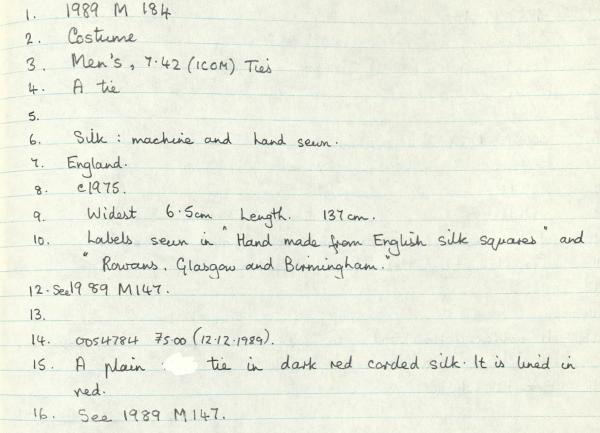 1. 1989 M 184
2. Costume
3. Men's, 7.42 (ICOM) Ties
4. A tie
5.
6. Silk : machine and hand sewn.
7. England.
8. c1975.
9. Widest 6.5cm Length. 137cm.
10. Labels sewn in "Hand made from English silk squares" and
"Rowans. Glasgow and Birmingham."
12. See 1989 M147.
13.
14. 0054784 75.00 (12.12.1989).
15. A plain tie in dark red corded silk. It is lined in
red.
16. See 1989 M147.